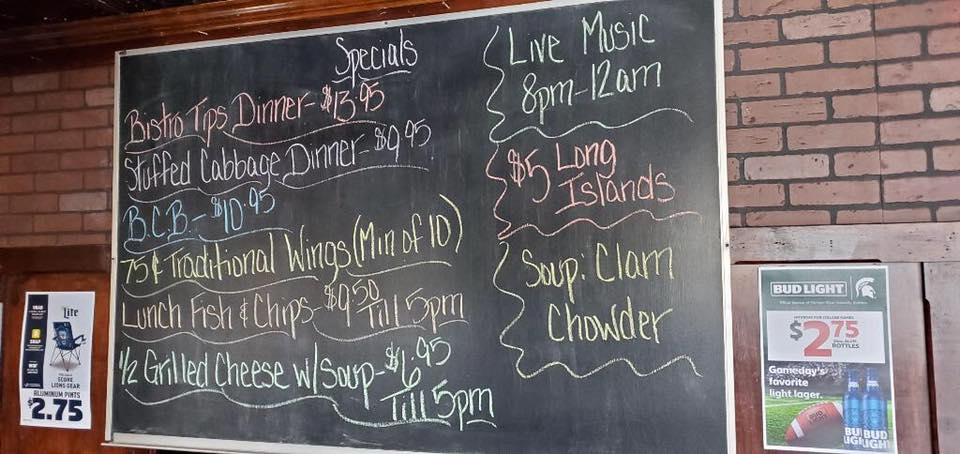 Specials
Bistro Tips Dinner - $13.95
Stuffed Cabbage Dinner - $9.95
B.C.B. - $10.95
75¢ Traditional Wings (Min of 10)
Lunch Fish & Chips - $9.50 Till 5pm
1/2 Grilled Cheese w/Soup - $6.95
Till 5pm
Live Music
8pm-12am
$5 Long
Islands
Soup: Clam
Chowder
Lite
SCORE
LIONS GEAR
ALUMINUM PINTS
$2.75
BUD LIGHT
$2.75
BOTTLES
Gameday's
favorite
light lager.
BUD
LIGHT
BUD
LIGHT